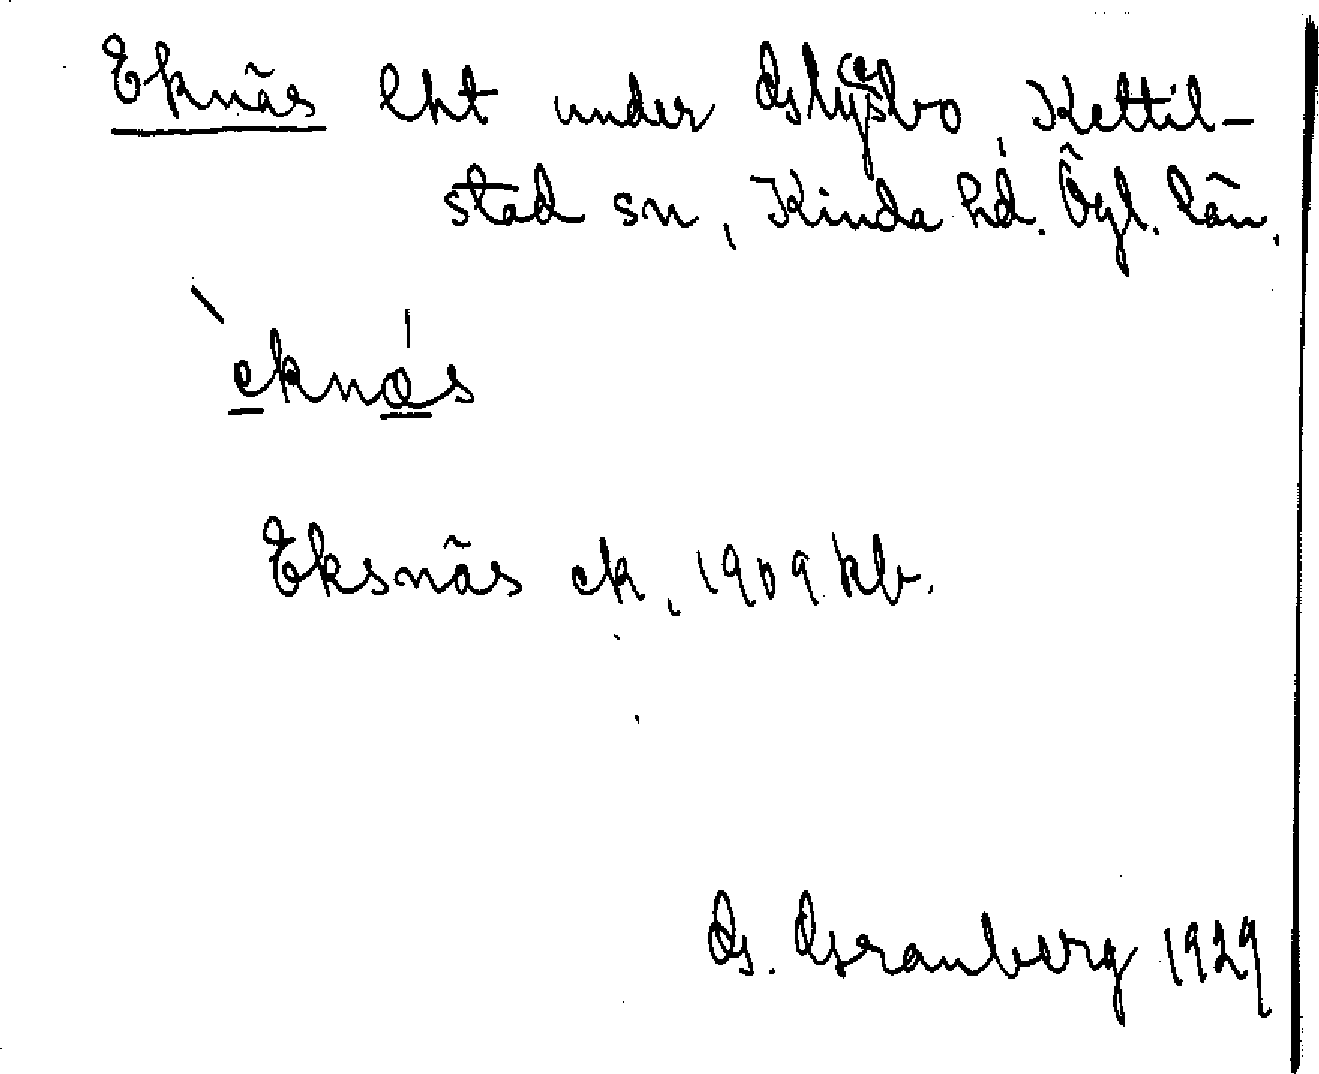 Eknäs lht under Glysbo, Kettil-
stad sn, Kinda hd. Ögl. län.
eknás
Eksnäs ck, 1909 kb.
G. Granberg 1929